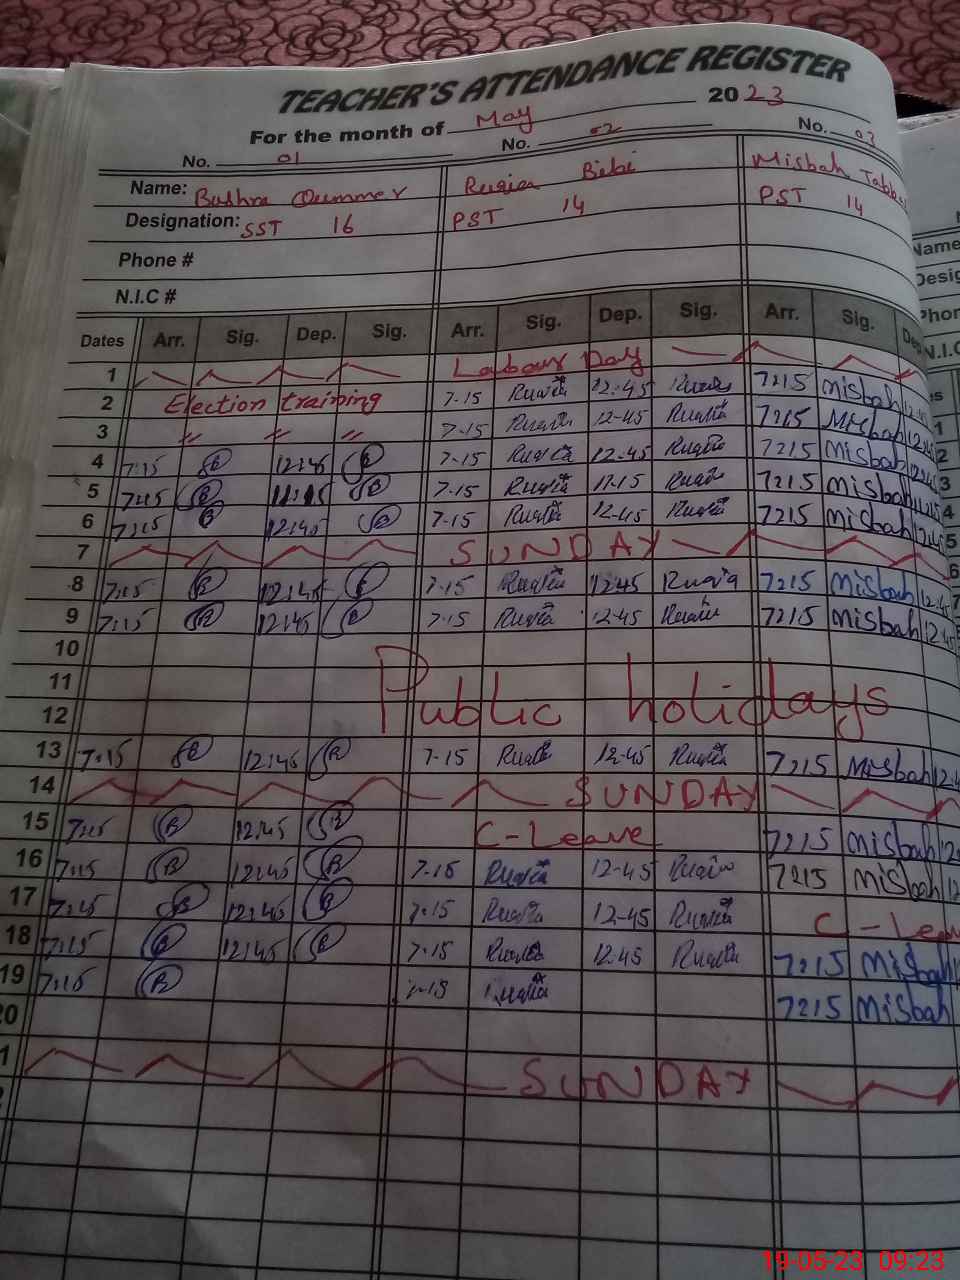 TEACHER'S ATTENDANCE REGISTER
For the month of May 2023
No. 01 No. 02 No. 03
Name: Bushra Qummer Ruqia Bibi Misbah
Designation: SST 16 PST 14 PST 14
Phone #
N.I.C #
Dates Arr. Sig. Dep. Sig. Arr. Sig. Dep. Sig. Arr. Sig. Dep.
1 Labour Day
2 Election training 7-15 Ruqia 12-45 Ruqia 7215 Misbah 12:45
3 〃 〃 〃 7-15 Ruqia 12-45 Ruqia 7215 Misbah 12:45
4 7:15 B 12:45 B 7-15 Ruqia 12-45 Ruqia 7215 Misbah 12:45
5 7:15 B 11:15 B 7-15 Ruqia 11-15 Ruqia 7215 Misbah 11:15
6 7:15 B 12:45 B 7-15 Ruqia 12-45 Ruqia 7215 Misbah 12:45
7 SUNDAY
8 7:15 B 12:45 B 7-15 Ruqia 12-45 Ruqia 7215 Misbah 12:45
9 7:15 B 12:45 B 7-15 Ruqia 12-45 Ruqia 7215 Misbah 12:45
10
11 Public holidays
12
13 7:15 B 12:45 B 7-15 Ruqia 12-45 Ruqia 7215 Misbah 12:4
14 SUNDAY
15 7:15 B 12:45 B C-Leave 7215 Misbah 12
16 7:15 B 12:45 B 7-15 Ruqia 12-45 Ruqia 7215 Misbah 12
17 7:15 B 12:45 B 7-15 Ruqia 12-45 Ruqia C-Leav
18 7:15 B 12:45 B 7-15 Ruqia 12-45 Ruqia 7215 Misbah
19 7:15 B 7-15 Ruqia 7215 Misbah
20
1 SUNDAY
19-05-23 09:23